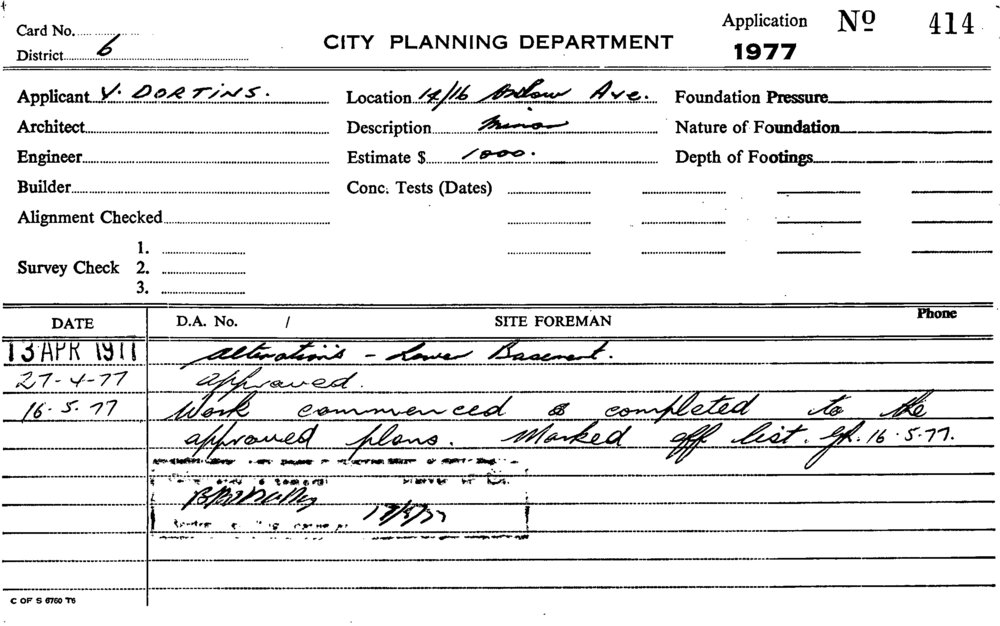 Card No.
District 6
CITY PLANNING DEPARTMENT
Application
1977
Nº 414
Applicant V. DORTINS.
Architect
Engineer
Builder
Alignment Checked
Survey Check 1.
2.
3.
Location 14/16 Onslow Ave.
Description Minor
Estimate $ 1000.
Conc. Tests (Dates)
Foundation Pressure
Nature of Foundation
Depth of Footings
DATE D.A. No. / SITE FOREMAN Phone
13 APR 1977 alterations - Lower Basement.
27-4-77 approved.
16.5.77 Work commenced & completed to the
approved plans. Marked off list. 16.5.77.
C OF S 6760 T6